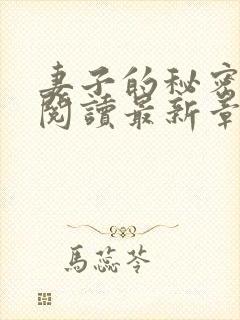 妻子的秘密
閱讀最新章
馬蕊苓